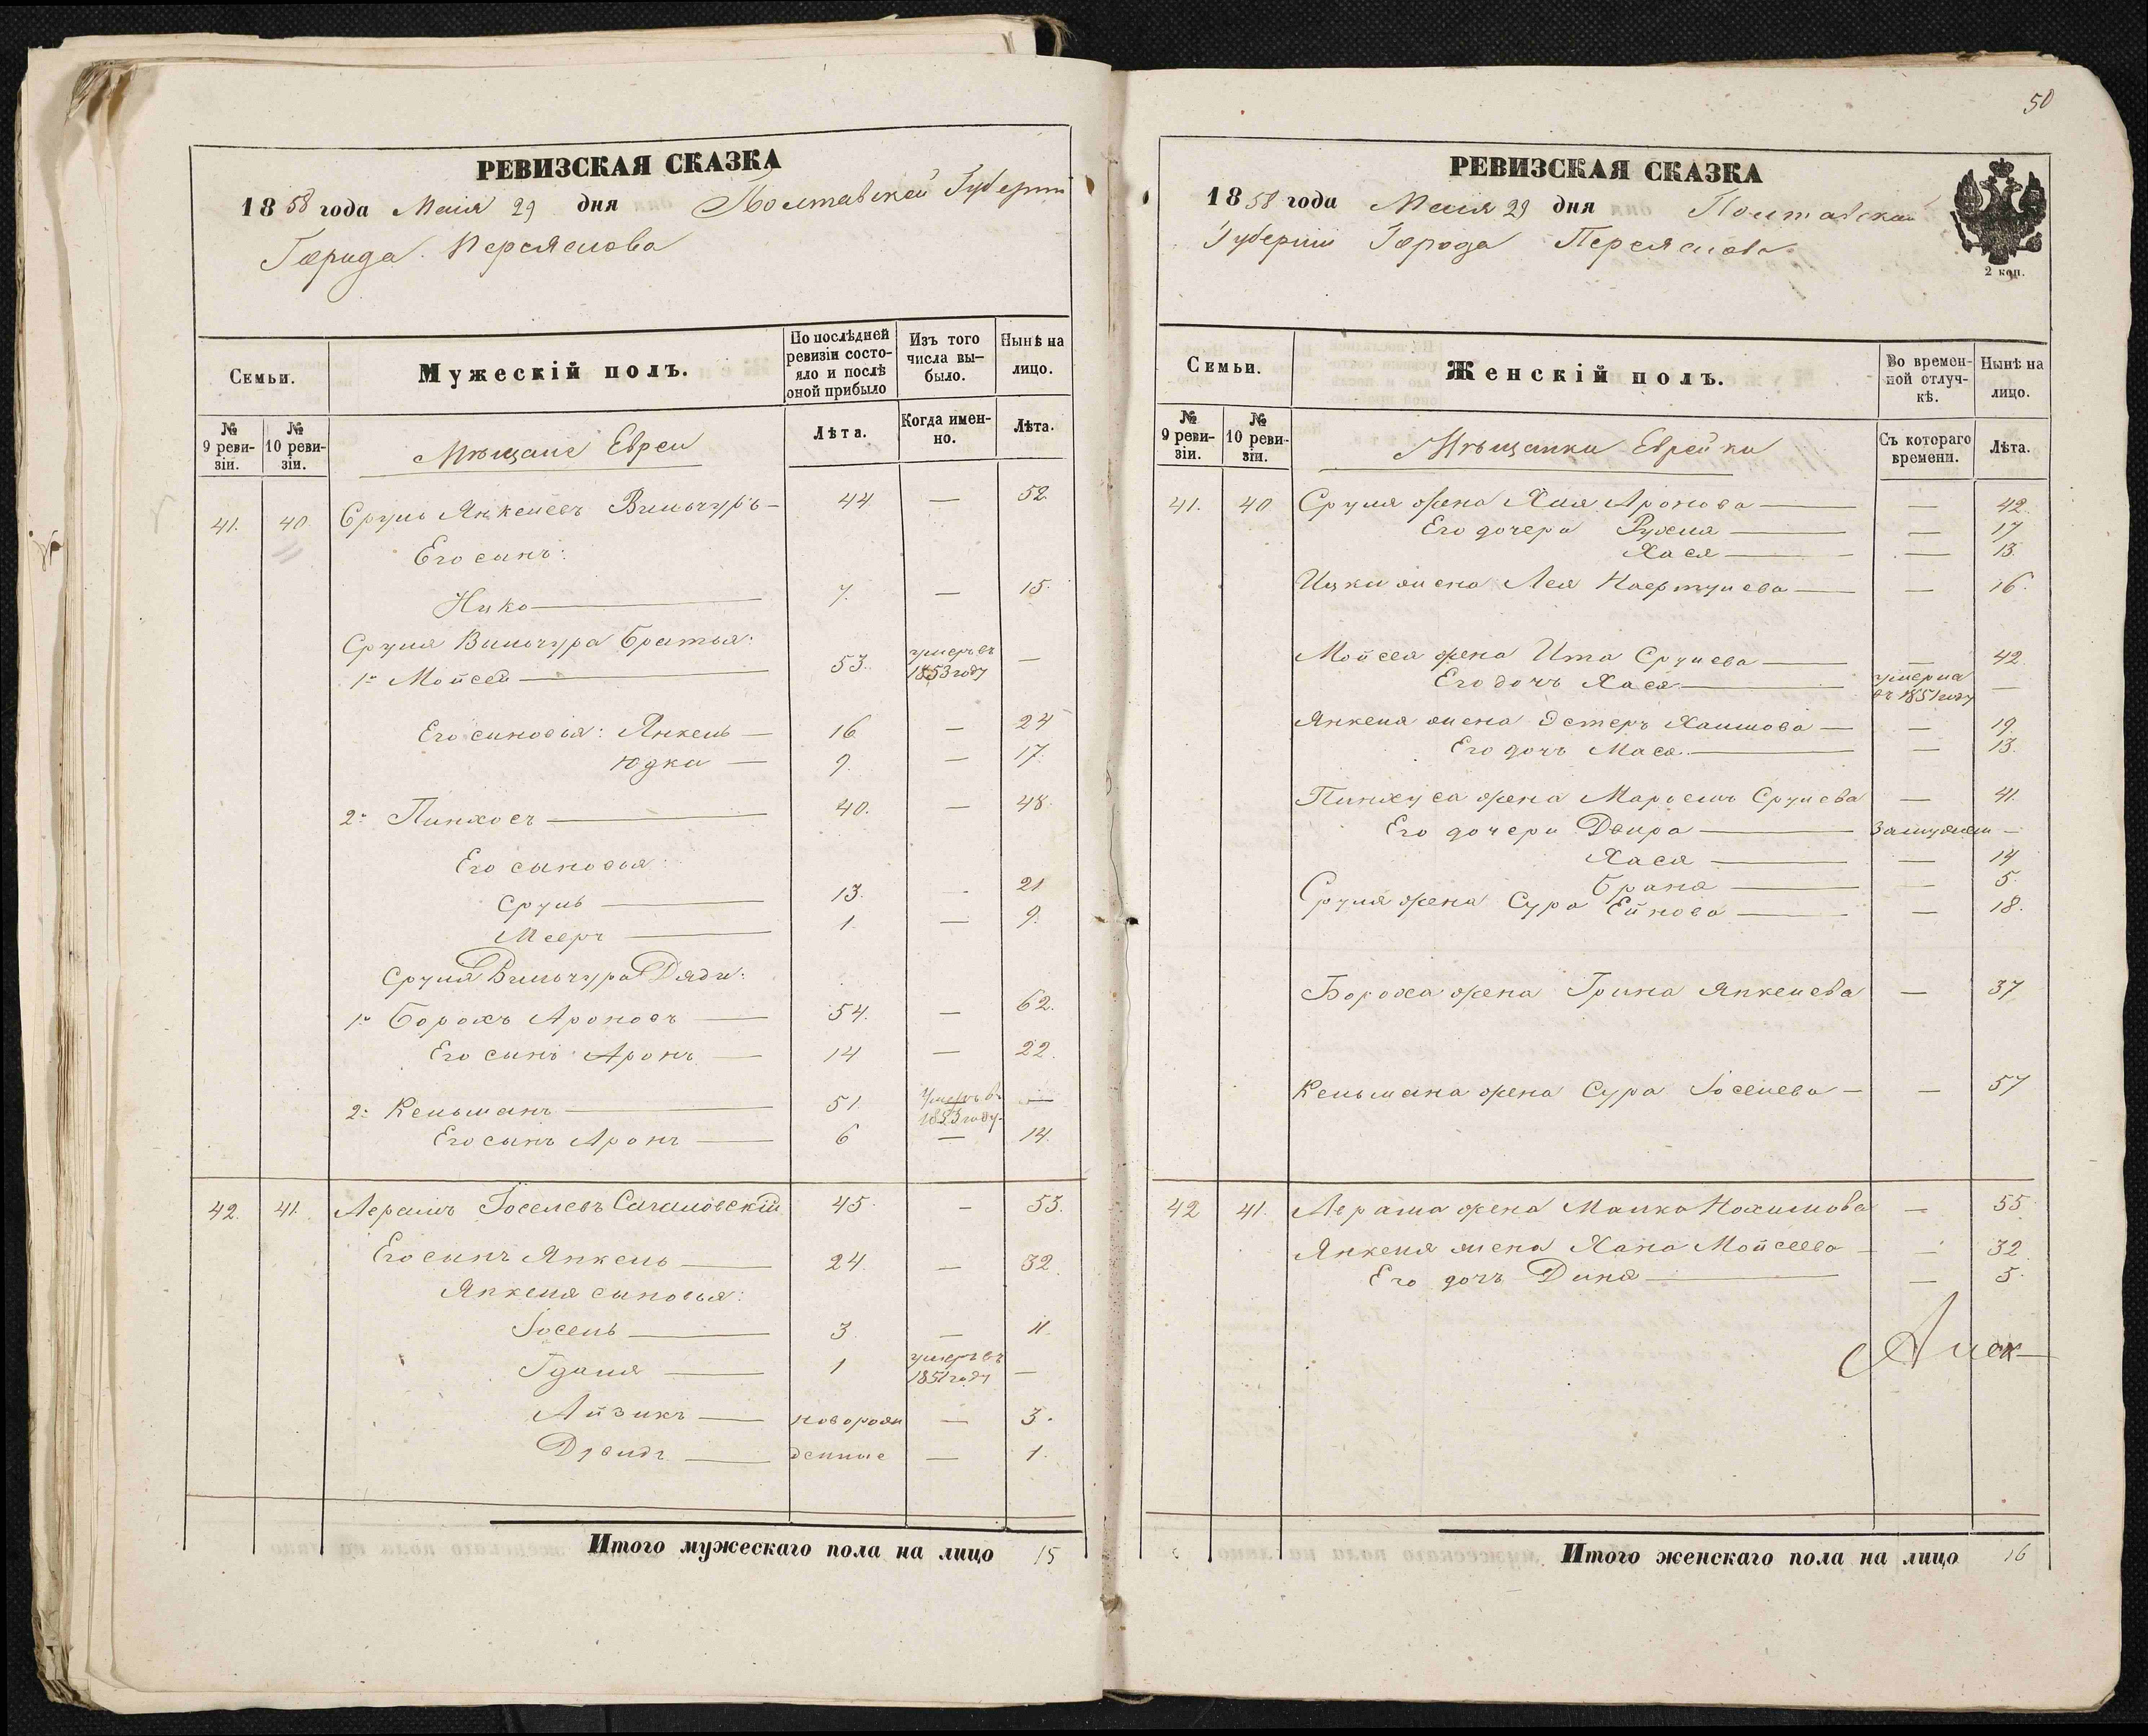 РЕВИЗСКАЯ СКАЗКА
1858 года Маія 29 дня Полтавской Губерніи
Города Переяслова
Семьи.
Мужескій полъ.
По послѣдней ревизіи состо-
яло и послѣ
оной прибыло
Изъ того
числа вы-
было.
Нынѣ на
лицо.
№ 9 реви-
зіи.
№ 10 реви-
зіи.
Мѣщане Евреи
Лѣта.
Когда имен-
но.
Лѣта.
41. 40. Сруль Янкелевъ Вильчуръ — 44 — 52.
Его сынъ:
Ицко — 7. — 15.
Сруля Вильчура братья:
1й Мойсей — 53. умеръ въ 1853 году —
Его сыновья: Янкель — 16 — 24
Юдка — 9. — 17.
2й Пинхосъ — 40. — 48.
Его сыновья:
Сруль — 13. — 21
Мееръ — 1. — 9.
Сруля Вильчура Дяди:
1й Борохъ Ароновъ — 54. — 62.
Его сынъ Аронъ — 14 — 22.
2й Кельманъ — 51 Умеръ въ 1853 году. —
Его сынъ Аронъ — 6 — 14.
42. 41. Іоселевъ 45. — 53.
Его сынъ Янкель — 24 — 32.
Янкеля сыновья:
Іосель — 3. — 11.
Гдаля — 1 умеръ въ 1851 году —
Айзикъ — новорож — 3.
Дувидъ — денные — 1.
Итого мужескаго пола на лицо 15
50
РЕВИЗСКАЯ СКАЗКА
1858 года Маія 29 дня Полтавской
Губерніи Города Переяслова
2 коп.
Семьи.
Женскій полъ.
Во времен-
ной отлуч-
кѣ.
Нынѣ на
лицо.
№ 9 реви-
зіи.
№ 10 реви-
зіи.
Мѣщанки Еврейки
Съ котораго
времени.
Лѣта.
41. 40 Сруля жена Хая Аронова — — 42.
Его дочери Рухля — — 17
Хася — — 13.
Ицки жена Лея — — 16.
Мойсея жена Ита Срулева — — 42
Его дочь Хася — умерла въ 1851 году —
Янкеля жена Эстеръ Хаимова — — 19.
Его дочь Мася — — 13.
Пинхуса жена Срулева — 41.
Его дочери Двира — Замужем —
Хася — — 14
Брана — — 5.
Сруля жена Сура — — 18.
Бороха жена Грина Янкелева — 37
Кельмана жена Сура Іоселева — — 57
42 41. жена Малка Нохимова — 55
Янкеля жена Хана Мойсеева — — 32.
Его дочь Дина — — 5.
Итого женскаго пола на лицо 16